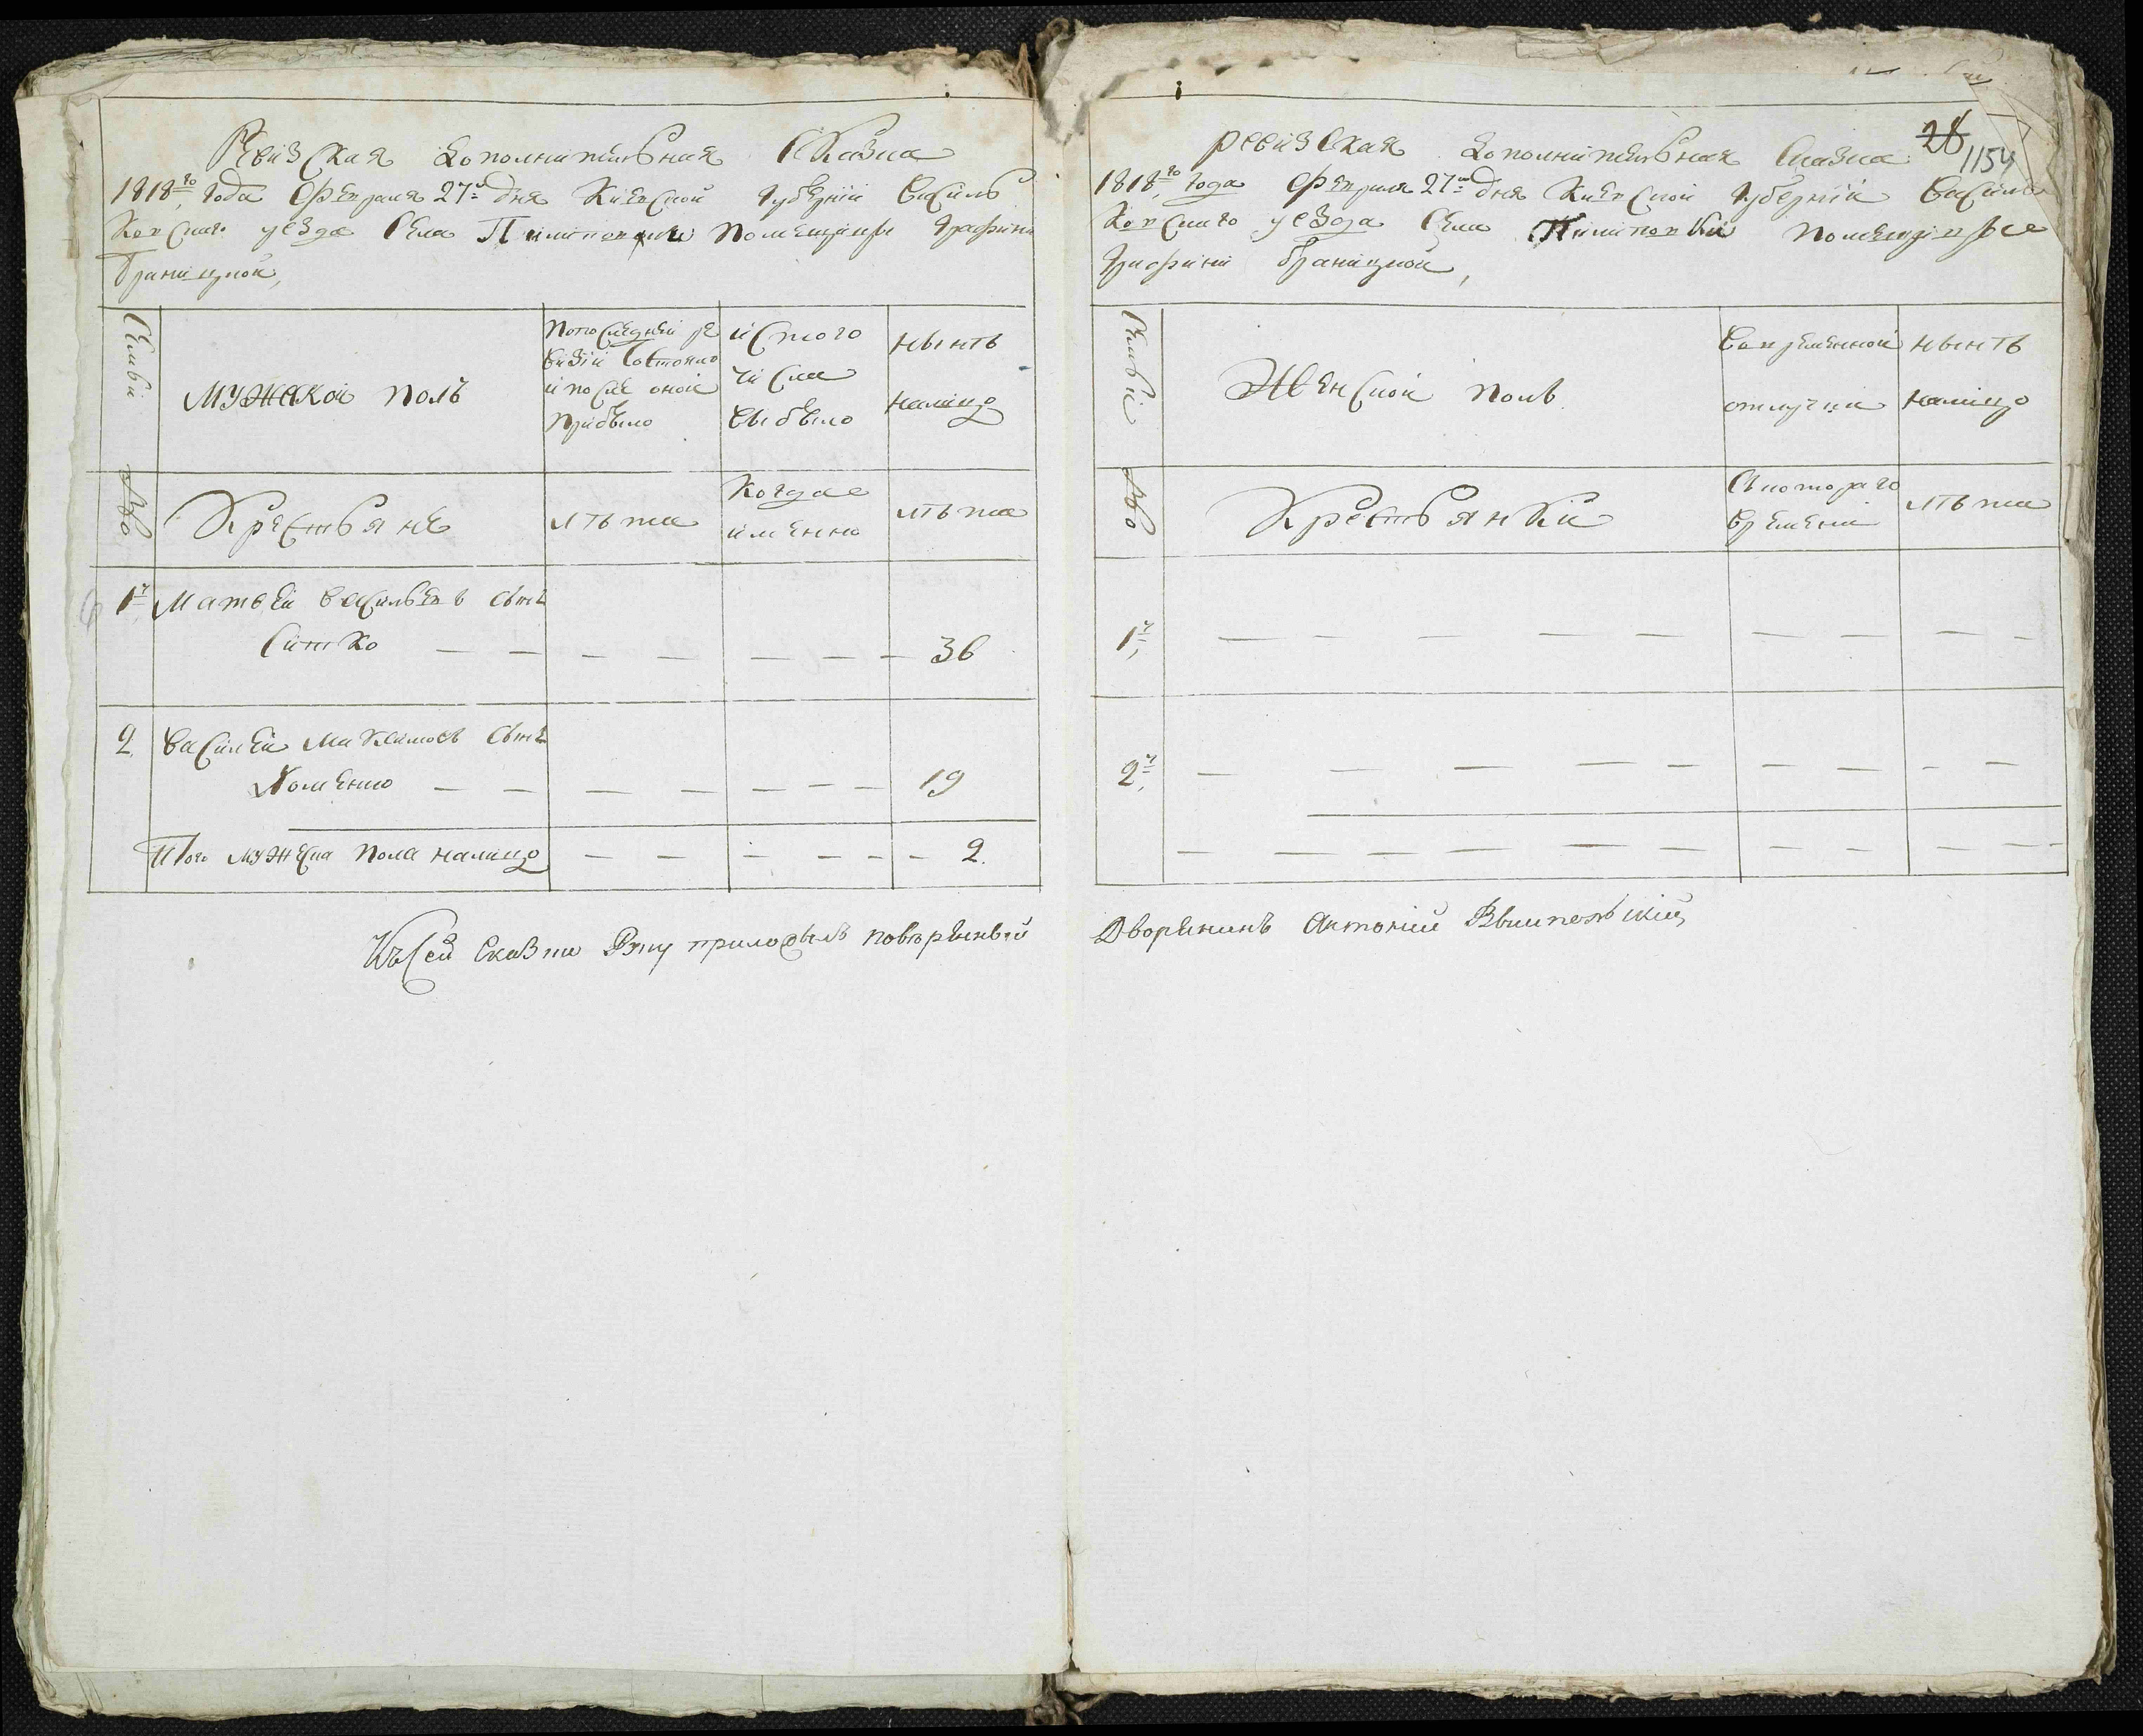 Ревизская дополнительная Сказка
1818го, года февраля 27го дня Киевской губернии Василь
Ковского уезда Села Пилиповки Помещицы Графини
Браницкой,
Семьи
мужской полъ
По последней ре
визии Состояло
и после оной
прибыло
ис того
числа
выбыло
ныне
налицо
№
Крестьяне
лета
Когда
именно
лета
1й Матвей васильев сынъ
Ситко — — — — — — — 36
2 василей Максимовъ сынъ
Хоменко — — — — — — — 19
Итого мужеска пола налицо — — — — — — 2.
Къ Сей Сказки Руку приложылъ повъренный
28
1154
ревизская дополнительная Сказка
1818го, года февраля 27го дня Киевской губернии Василь
Ковского уезда Села Пилиповки помещицы
Графини Браницкой,
Семьи
Женской полъ
Во временной
отлучки
ныне
налицо
№
Крестьянки
С которого
времени
лета
1й, — — — — — — — — —
2й, — — — — — — — — —
— — — — — — — — — —
Дворянинъ Антоній